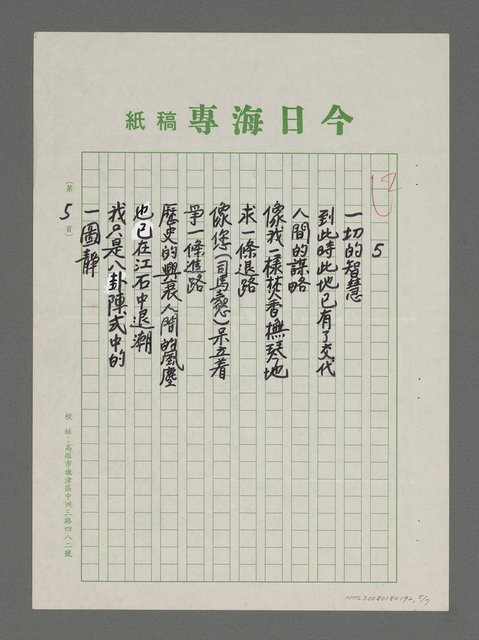 今日海專稿紙
2
5
一切的智慧
到此時此地已有了交代
人間的謀略
像我一樣焚香撫琴地
求一條退路
像您(司馬懿)呆立着
爭一條進路
歷史的興衰人間的風塵
也已在江石中退潮
我只是八卦陣式中的
一圖靜
(第5頁)
校址:高雄市旗津區中洲三路四八二號
NMTL20080180192, 5/7